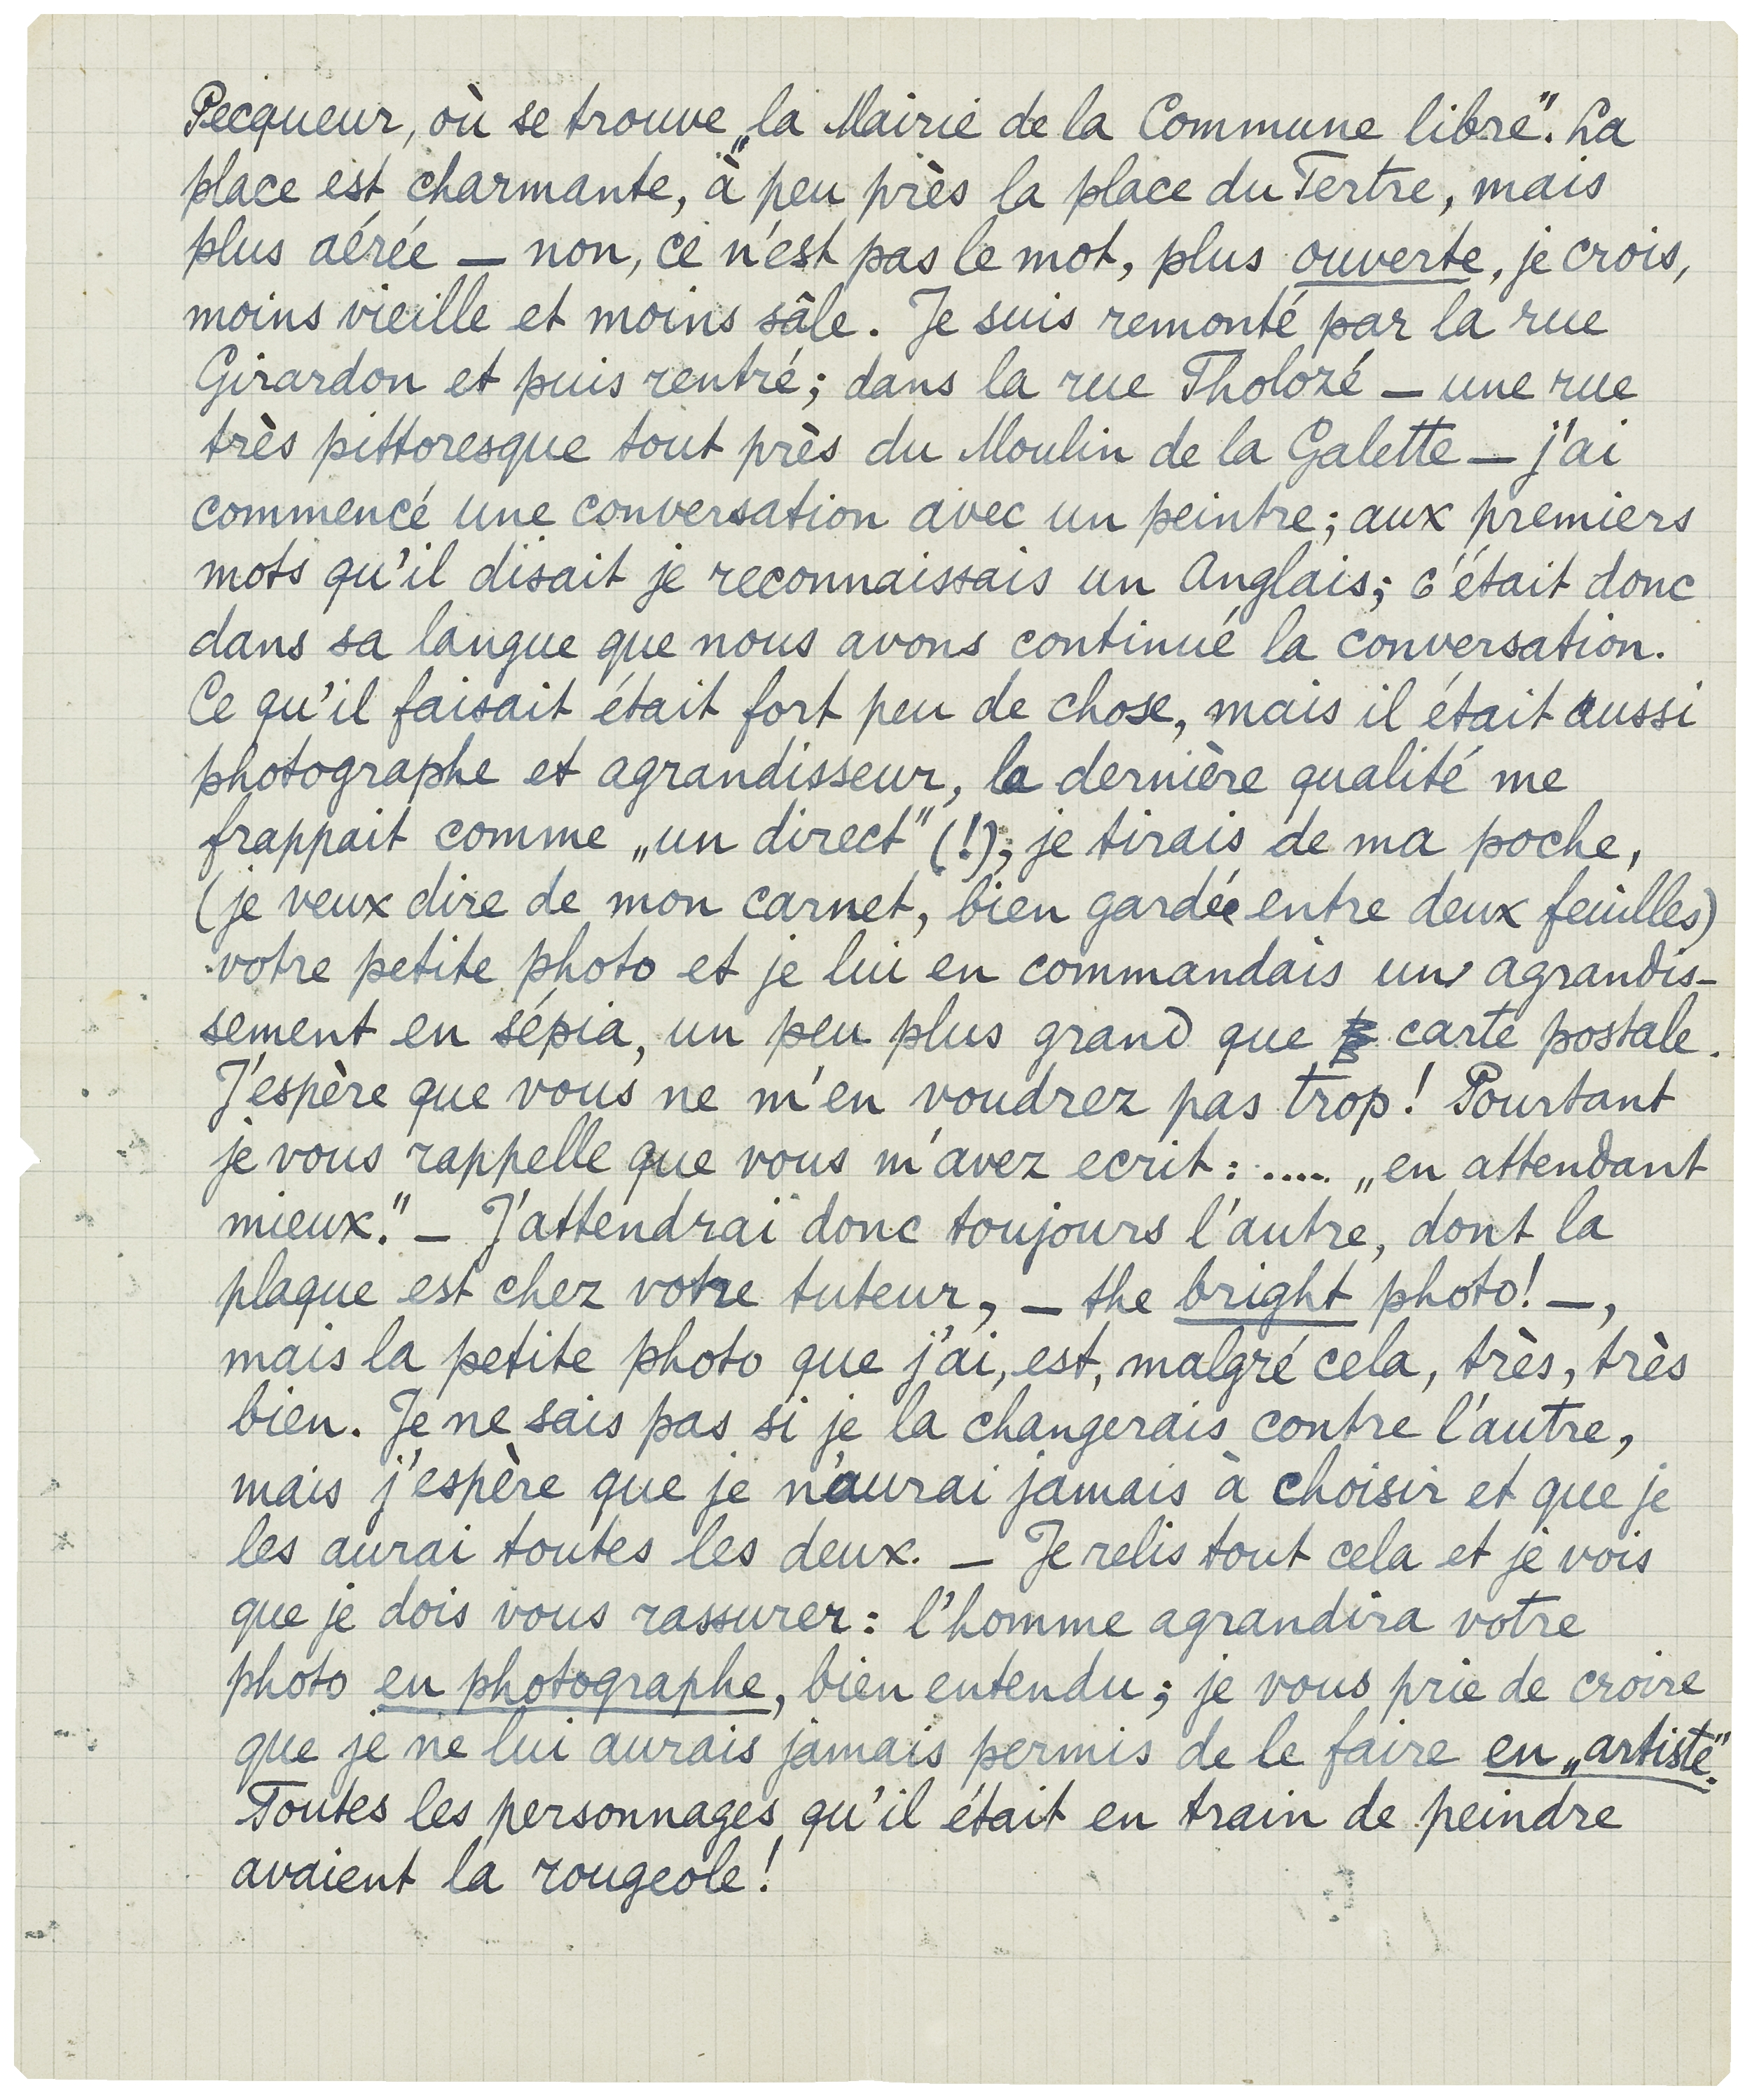 Pecqueur, où se trouve „la Mairie de la Commune libre". La
place est charmante, à peu près la place du Tertre, mais
plus aérée — non, ce n'est pas le mot, plus ouverte, je crois,
moins vieille et moins sâle. Je suis remonté par la rue
Girardon et puis rentré; dans la rue Tholozé — une rue
très pittoresque tout près du Moulin de la Galette — j'ai
commencé une conversation avec un peintre; aux premiers
mots qu'il disait je reconnaissais un Anglais; c'était donc
dans sa langue que nous avons continué la conversation.
Ce qu'il faisait était fort peu de chose, mais il était aussi
photographe et agrandisseur, la dernière qualité me
frappait comme „un direct" (!); je tirais de ma poche,
(je veux dire de mon carnet, bien gardée entre deux feuilles)
votre petite photo et je lui en commandais un agrandis-
sement en sépia, un peu plus grand que carte postale.
J'espère que vous ne m'en voudrez pas trop! Pourtant
je vous rappelle que vous m'avez ecrit: .... „en attendant
mieux." — J'attendrai donc toujours l'autre, dont la
plaque est chez votre tuteur, — the bright photo! —,
mais la petite photo que j'ai, est, malgré cela, très, très
bien. Je ne sais pas si je la changerais contre l'autre,
mais j'espère que je n'aurai jamais à choisir et que je
les aurai toutes les deux. — Je relis tout cela et je vois
que je dois vous rassurer: l'homme agrandira votre
photo en photographe, bien entendu; je vous prie de croire
que je ne lui aurais jamais permis de le faire en „artiste".
Toutes les personnages qu'il était en train de peindre
avaient la rougeole!